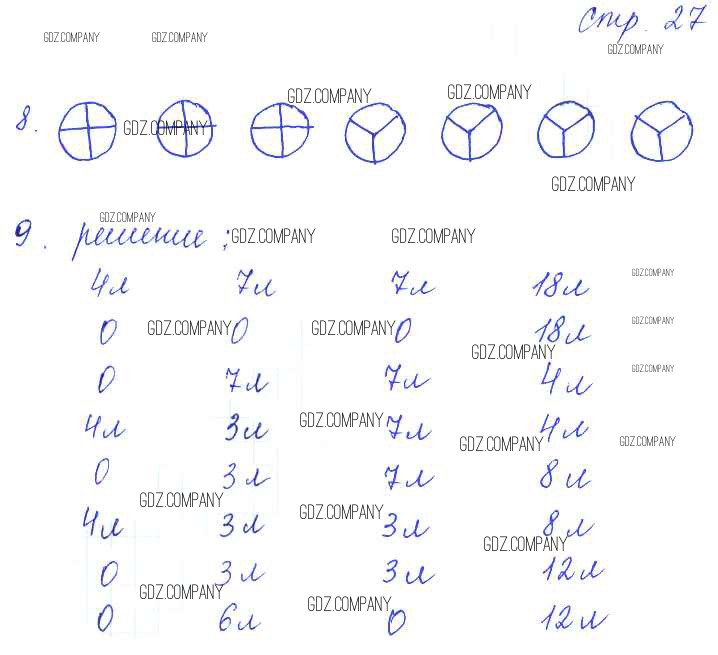 стр. 27
GDZ.COMPANY GDZ.COMPANY GDZ.COMPANY
GDZ.COMPANY GDZ.COMPANY
8. GDZ.COMPANY
GDZ.COMPANY
GDZ.COMPANY
9. решение: GDZ.COMPANY GDZ.COMPANY
4л 7л 7л 18л GDZ.COMPANY
0 GDZ.COMPANY 0 GDZ.COMPANY 0 18л GDZ.COMPANY
GDZ.COMPANY
0 7л 7л 4л GDZ.COMPANY
4л 3л GDZ.COMPANY 7л 4л
GDZ.COMPANY GDZ.COMPANY
0 3л 7л 8л
GDZ.COMPANY
4л 3л GDZ.COMPANY 3л 8л
GDZ.COMPANY
0 3л 3л 12л
GDZ.COMPANY GDZ.COMPANY
0 6л 0 12л